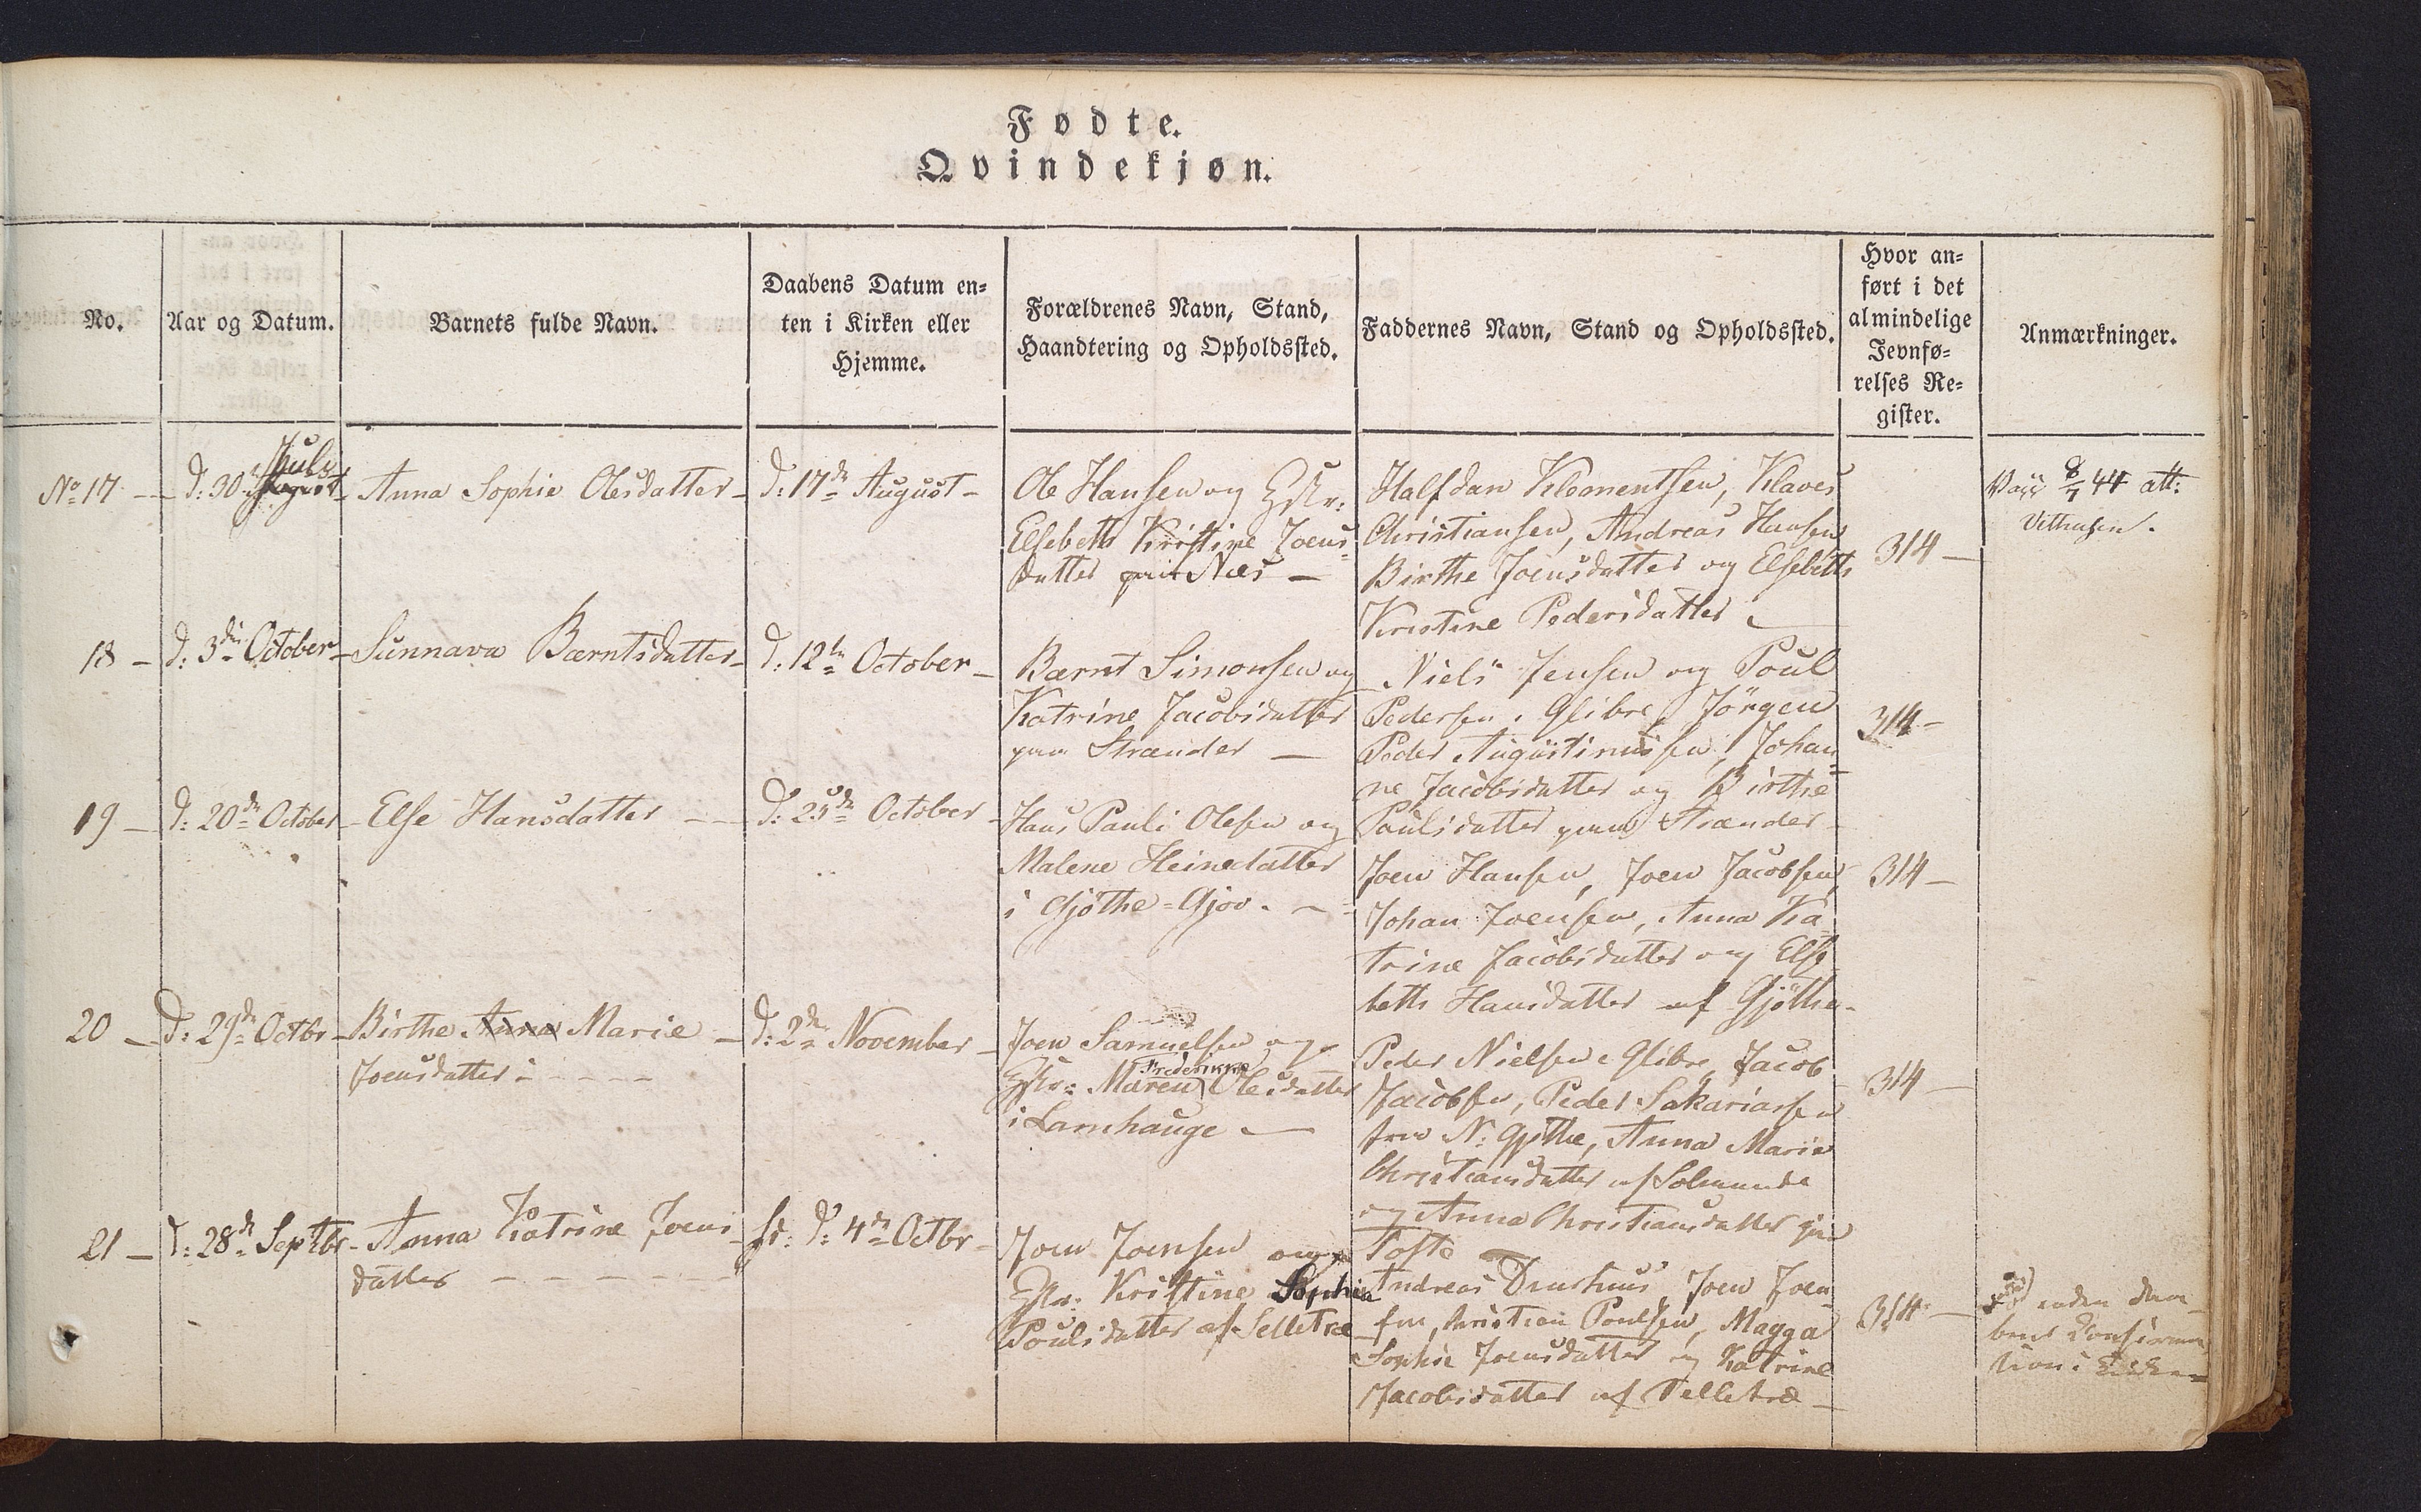 Fødte.
Qvindekjøn.
No.
Aar og Datum.
Barnets fulde Navn.
Daabens Datum en-
ten i Kirken eller
Hjemme.
Forældrenes Navn, Stand,
Haandtering og Opholdssted.
Faddernes Navn, Stand og Opholdssted.
Hvor an-
ført i det
almindelige
Jevnfø-
relses Re-
gister.
Anmærkninger.
No 17 -
July
d: 30 August
Anna Sophie Olesdatter
d: 17de August
Ole Hansen og Hstr:
Elsebeth Kristine Joens
datter paa Næs
Halfdan Klementsen, Klaves
Christiansen, Andreas Hansen
Birthe Joensdatter og Elsebeth
Kristine Pedersdatter
314
Vacc 8/7 44 att:
18
d: 3die October
Sunnava Bærntsdatter
d: 12te October
Bærnt Simonsen og
Katrine Jacobsdatter
paa Strænder
Niels Jensen og Poul
Pedersen i Glibre Jörgen
Peder Augustinussen, Johan-
ne Jacobsdatter og Birthe
Poulsdatter paa Strænder
314
19
d: 20de October
Else Hansdatter
d: 25de October
Hans Pauli Olesen og
Malene Heinedatter
i Gjöthe-Gjov.
Joen Hansen, Joen Jacobsen,
Johan Joensen, Anna Ka-
trine Jacobsdatter og Else-
beth Hansdatter af Gjöthe
314
20
d: 29de Octbr
Birthe Anna Marie
Joensdatter
d: 2den November
Joen Samuelsen og
Frederikke
Hstr: Maren Olesdatter
i Lamhauge
Peder Nielsen i Glibre Jacob
Jacobsen, Peder Sakariasen
fra N: Gjöthe, Anna Marie
Christiansdatter af Solmunde
og Anna Christiansdatter paa
Tofte
314
21
d: 28de Septbr
Anna Katrine Joens
datter
d: 4de Octbr
Joen Joensen og
Hstr: Kristine Sophie
Poulsdatter af Selletræ
Andreas Joen Joen-
sen, Christian Poulsen, Magga
Sophie Joensdatter og Katrine
Jacobsdatter af Selletræ
314
uden Daa-
bens Confirma-
tion i Kirken